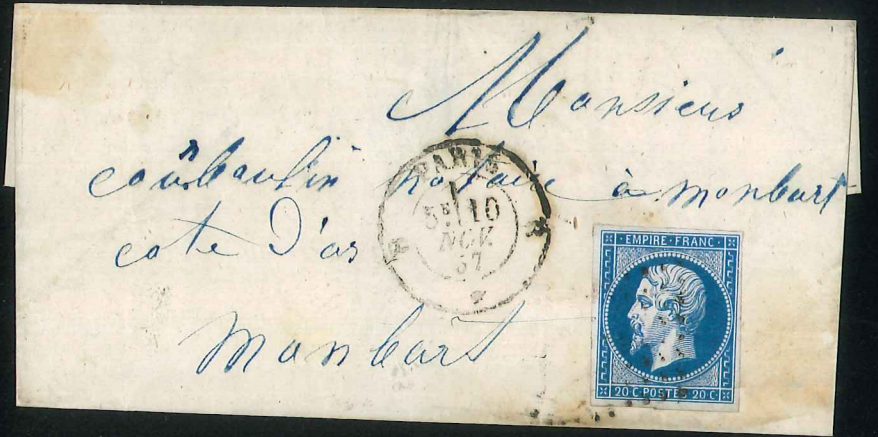 Monsieur
notaire à monbart
cote D'or
Monbart
PARIS
5E 10
NOV.
57
EMPIRE FRANC
20 C POSTES 20 C